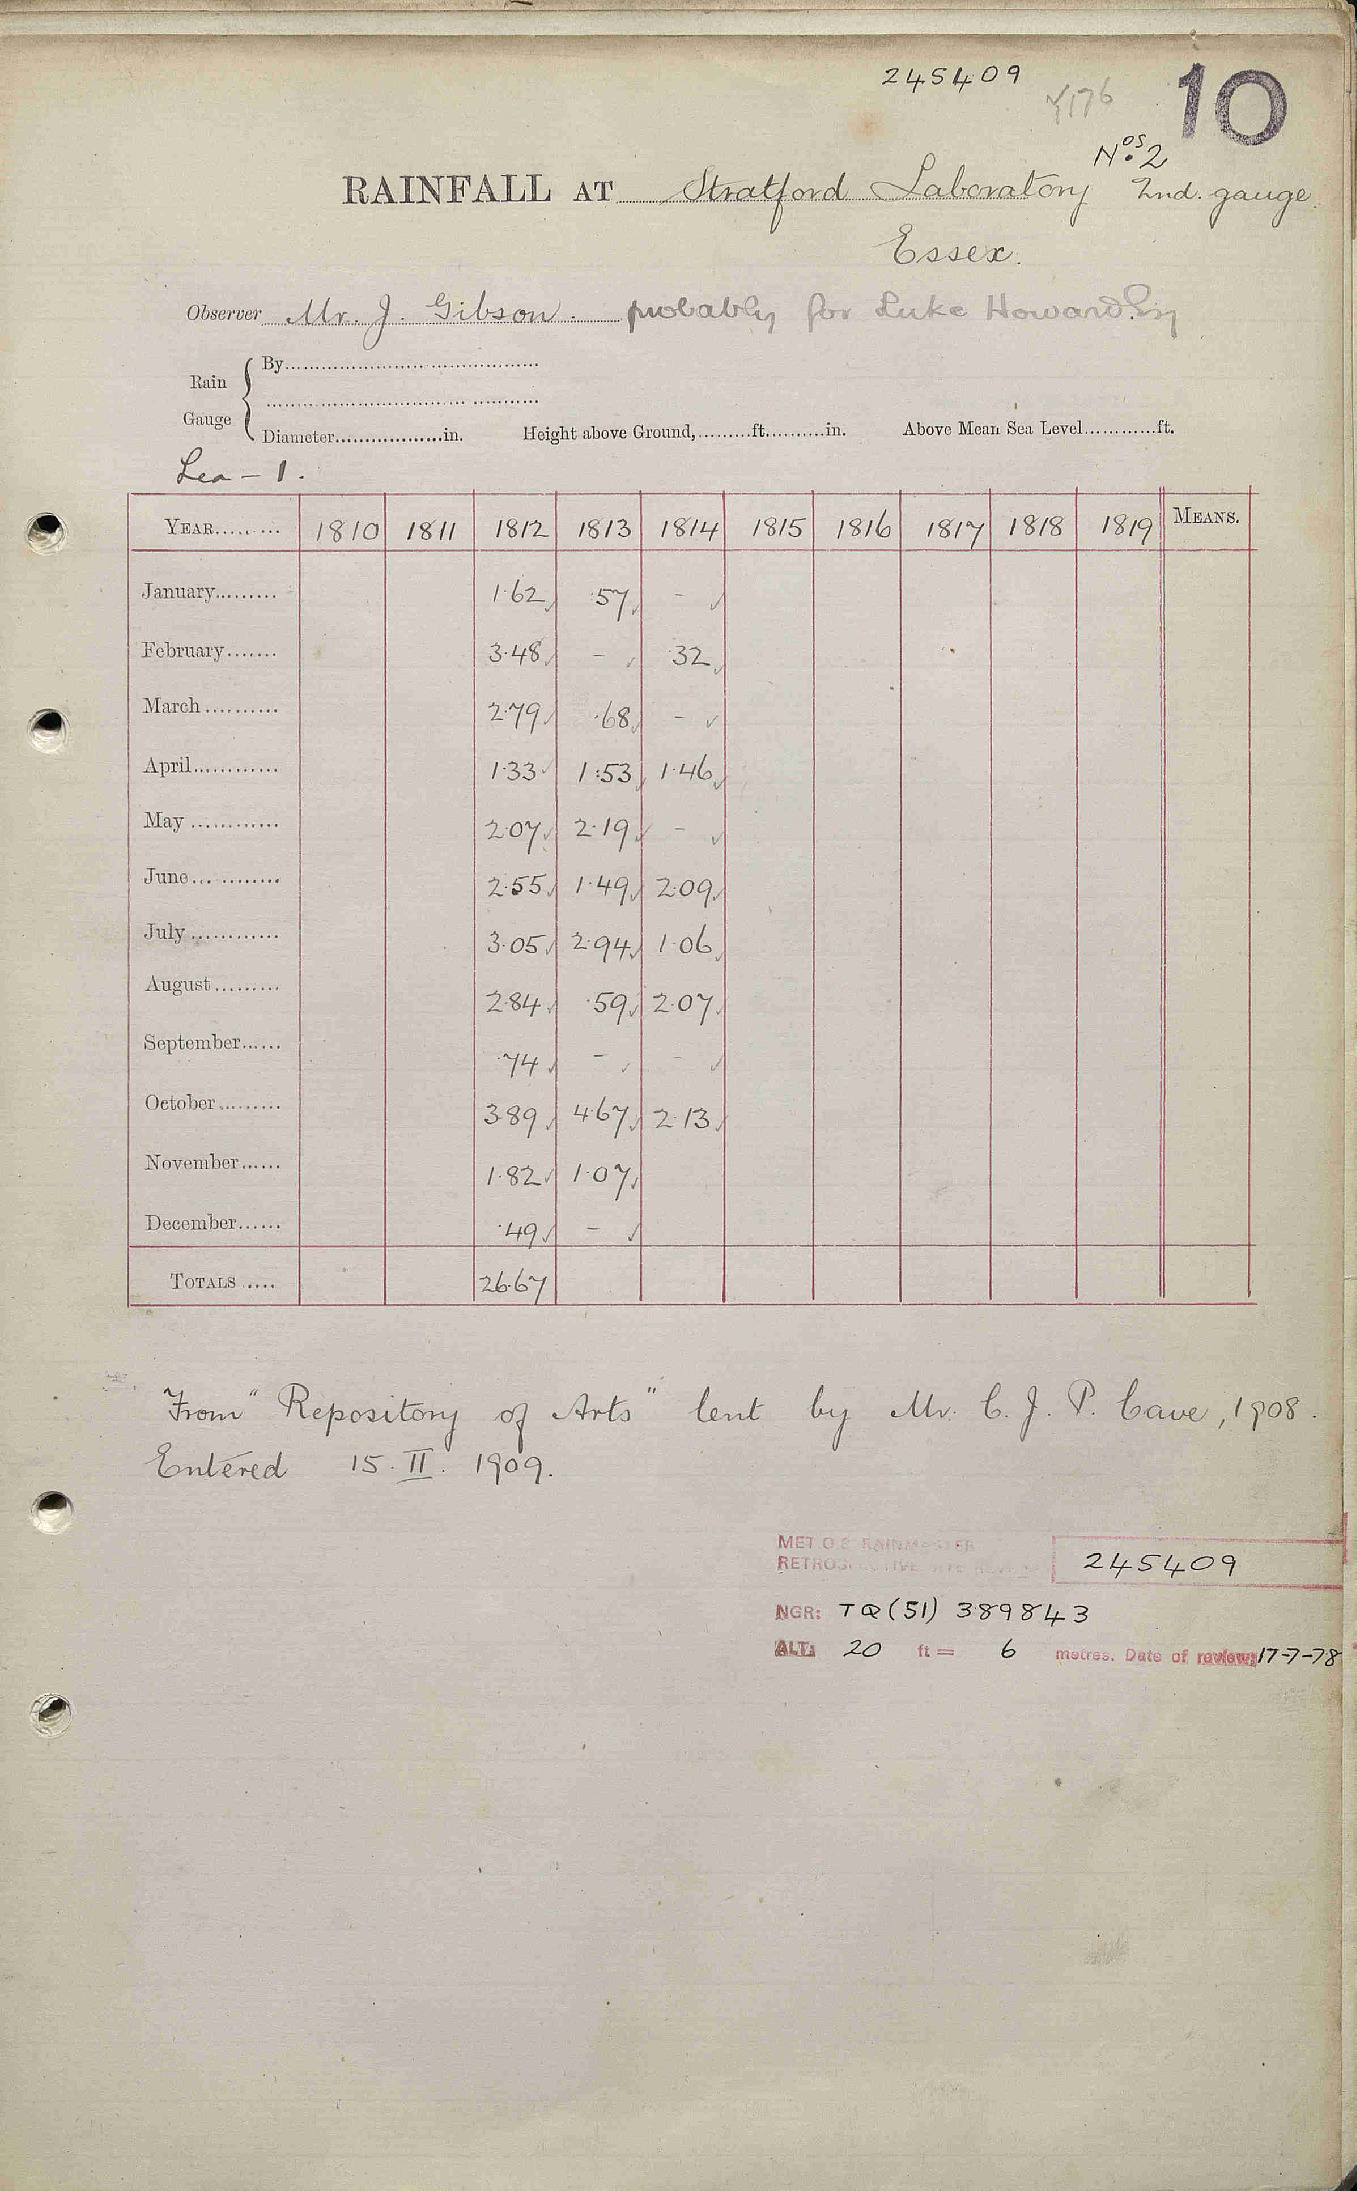 245409
10
Nos. 2
RAINFALL AT Stratford Laboratory 2nd. gauge.
Essex.
Observer Mr. J. Gibson. probably for Luke Howard Esq
Rain Gauge
By
Diameter in. Height above Ground, ft. in. Above Mean Sea Level ft.
Lea - 1.
YEAR 1810 1811 1812 1813 1814 1815 1816 1817 1818 1819 MEANS.
January 1.62 .57 -
February 3.48 - .32
March 2.79 .68 -
April 1.33 1.53 1.46
May 2.07 2.19 -
June 2.55 1.49 2.09
July 3.05 2.94 1.06
August 2.84 .59 2.07
September .74 - -
October 3.89 4.67 2.13
November 1.82 1.07
December .49 -
TOTALS 26.67
From "Repository of Arts" lent by Mr. C. J. P. Cave, 1908.
Entered 15. II. 1909.
MET O 8 RAINMASTER
245409
NGR: TQ (51) 389843
ALT: 20 ft = 6 metres. Date of review: 17-7-78